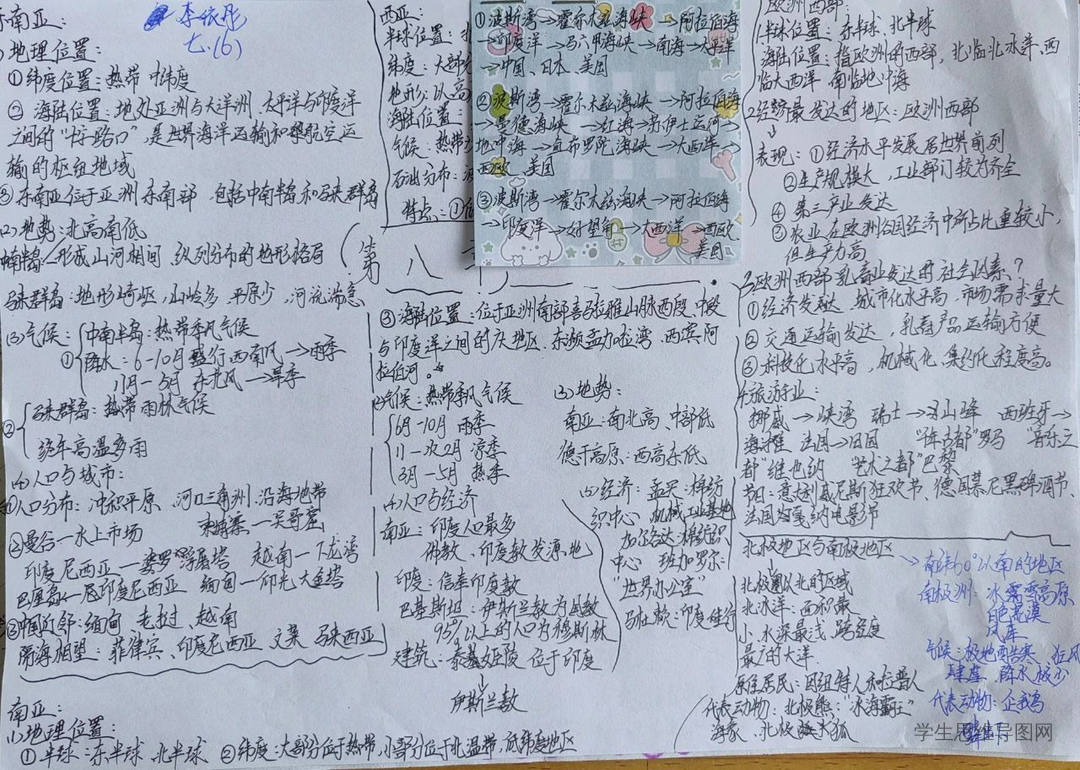 东南亚:
李依彤
七.(6)
地理位置:
①纬度位置:热带 中纬度
② 海陆位置:地处亚洲与大洋洲、太平洋与印度洋
之间的“十字路口”,是世界海洋运输和
输的枢纽地域
③东南亚位于亚洲东南部,包括中南半岛和马来群岛
(2)地势:北高南低
中南半岛—形成山河相间,纵列分布的地形格局
马来群岛:地形崎岖,山岭多 平原少,河流湍急
(3)气候:
中南半岛:热带季风气候
①降水:6-10月盛行西南风→雨季
11月-5月 东北风→旱季
②马来群岛:热带雨林气候
终年高温多雨
(4)人口与城市:
①人口分布:冲积平原、河口三角洲、沿海地带
柬埔寨—吴哥窟
②曼谷—水上市场
印度尼西亚—婆罗浮屠塔 越南—下龙湾
巴厘岛—印度尼西亚 缅甸—仰光大金塔
③中国近邻:缅甸 老挝、越南
隔海相望:菲律宾、印度尼西亚 文莱 马来西亚
南亚:
(1)地理位置:
①半球:东半球、北半球 ②纬度:大部分位于热带,小部分位于北温带,低纬度地区
西亚:
半球位置:
纬度:大部分
地形:以高
海陆位置:
气候:热带
石油分布:
特点:①
第八
①波斯湾→霍尔木兹海峡→阿拉伯海
→印度洋→马六甲海峡→南海→太平洋
→中国、日本、美国
②波斯湾→霍尔木兹海峡→阿拉伯海
→曼德海峡→红海→苏伊士运河→
地中海→直布罗陀海峡→大西洋→
西欧 美国
③波斯湾→霍尔木兹海峡→阿拉伯海
→印度洋→好望角→大西洋→西欧
美国
③海陆位置:位于亚洲南部喜马拉雅山脉西段、中段
与印度洋之间的广大地区、东濒孟加拉湾、西滨阿
拉伯海。
(2)气候:热带季风气候
6月-10月 雨季
11-次2月 凉季
3月-5月 热季
(4)人口与经济
南亚:印度人口最多
佛教、印度教发源地
印度:信奉印度教
巴基斯坦:伊斯兰教为国教
95%以上的人口为穆斯林
建筑:泰姬陵 位于印度
伊斯兰教
(3)地势:
南亚:南北高、中部低
德干高原:西高东低
(5)经济:孟买:棉纺
织中心 机械工业基地
加尔各答:麻纺织
中心 班加罗尔:
“世界办公室”
欧洲西部:
半球位置:东半球、北半球
海陆位置:指欧洲的西部,北临北冰洋、西
临大西洋 南临地中海
2经济最发达的地区:欧洲西部
表现:①经济水平发展居世界前列
②生产规模大,工业部门较为齐全
④第三产业发达
③农业在欧洲各国经济中所占比重较小,
但生产力高
3欧洲西部乳畜业发达的社会因素?
①经济发达、城市化水平高、市场需求量大
②交通运输发达,乳畜产品运输方便
③科技化水平高,机械化,集约化程度高。
4旅游业:
挪威→峡湾 瑞士→雪山 西班牙→
海滩 法国→田园 “千年古都”罗马 “音乐之
都”维也纳 “艺术之都”巴黎
节日:意大利威尼斯狂欢节、德国慕尼黑啤酒节、
法国戛纳电影节
北极地区与南极地区
北极圈以北的区域
北冰洋:面积最
小、水深最浅、跨经度
最广的大洋
原住居民:因纽特人
代表动物:北极熊:“冰海霸王”
海象、北极狐
南纬60°以南的地区
南极洲:冰雪高原
白色荒漠
风库
气候:极地酷寒、狂风
肆虐、降水极少
代表动物:企鹅
学生思维导图网